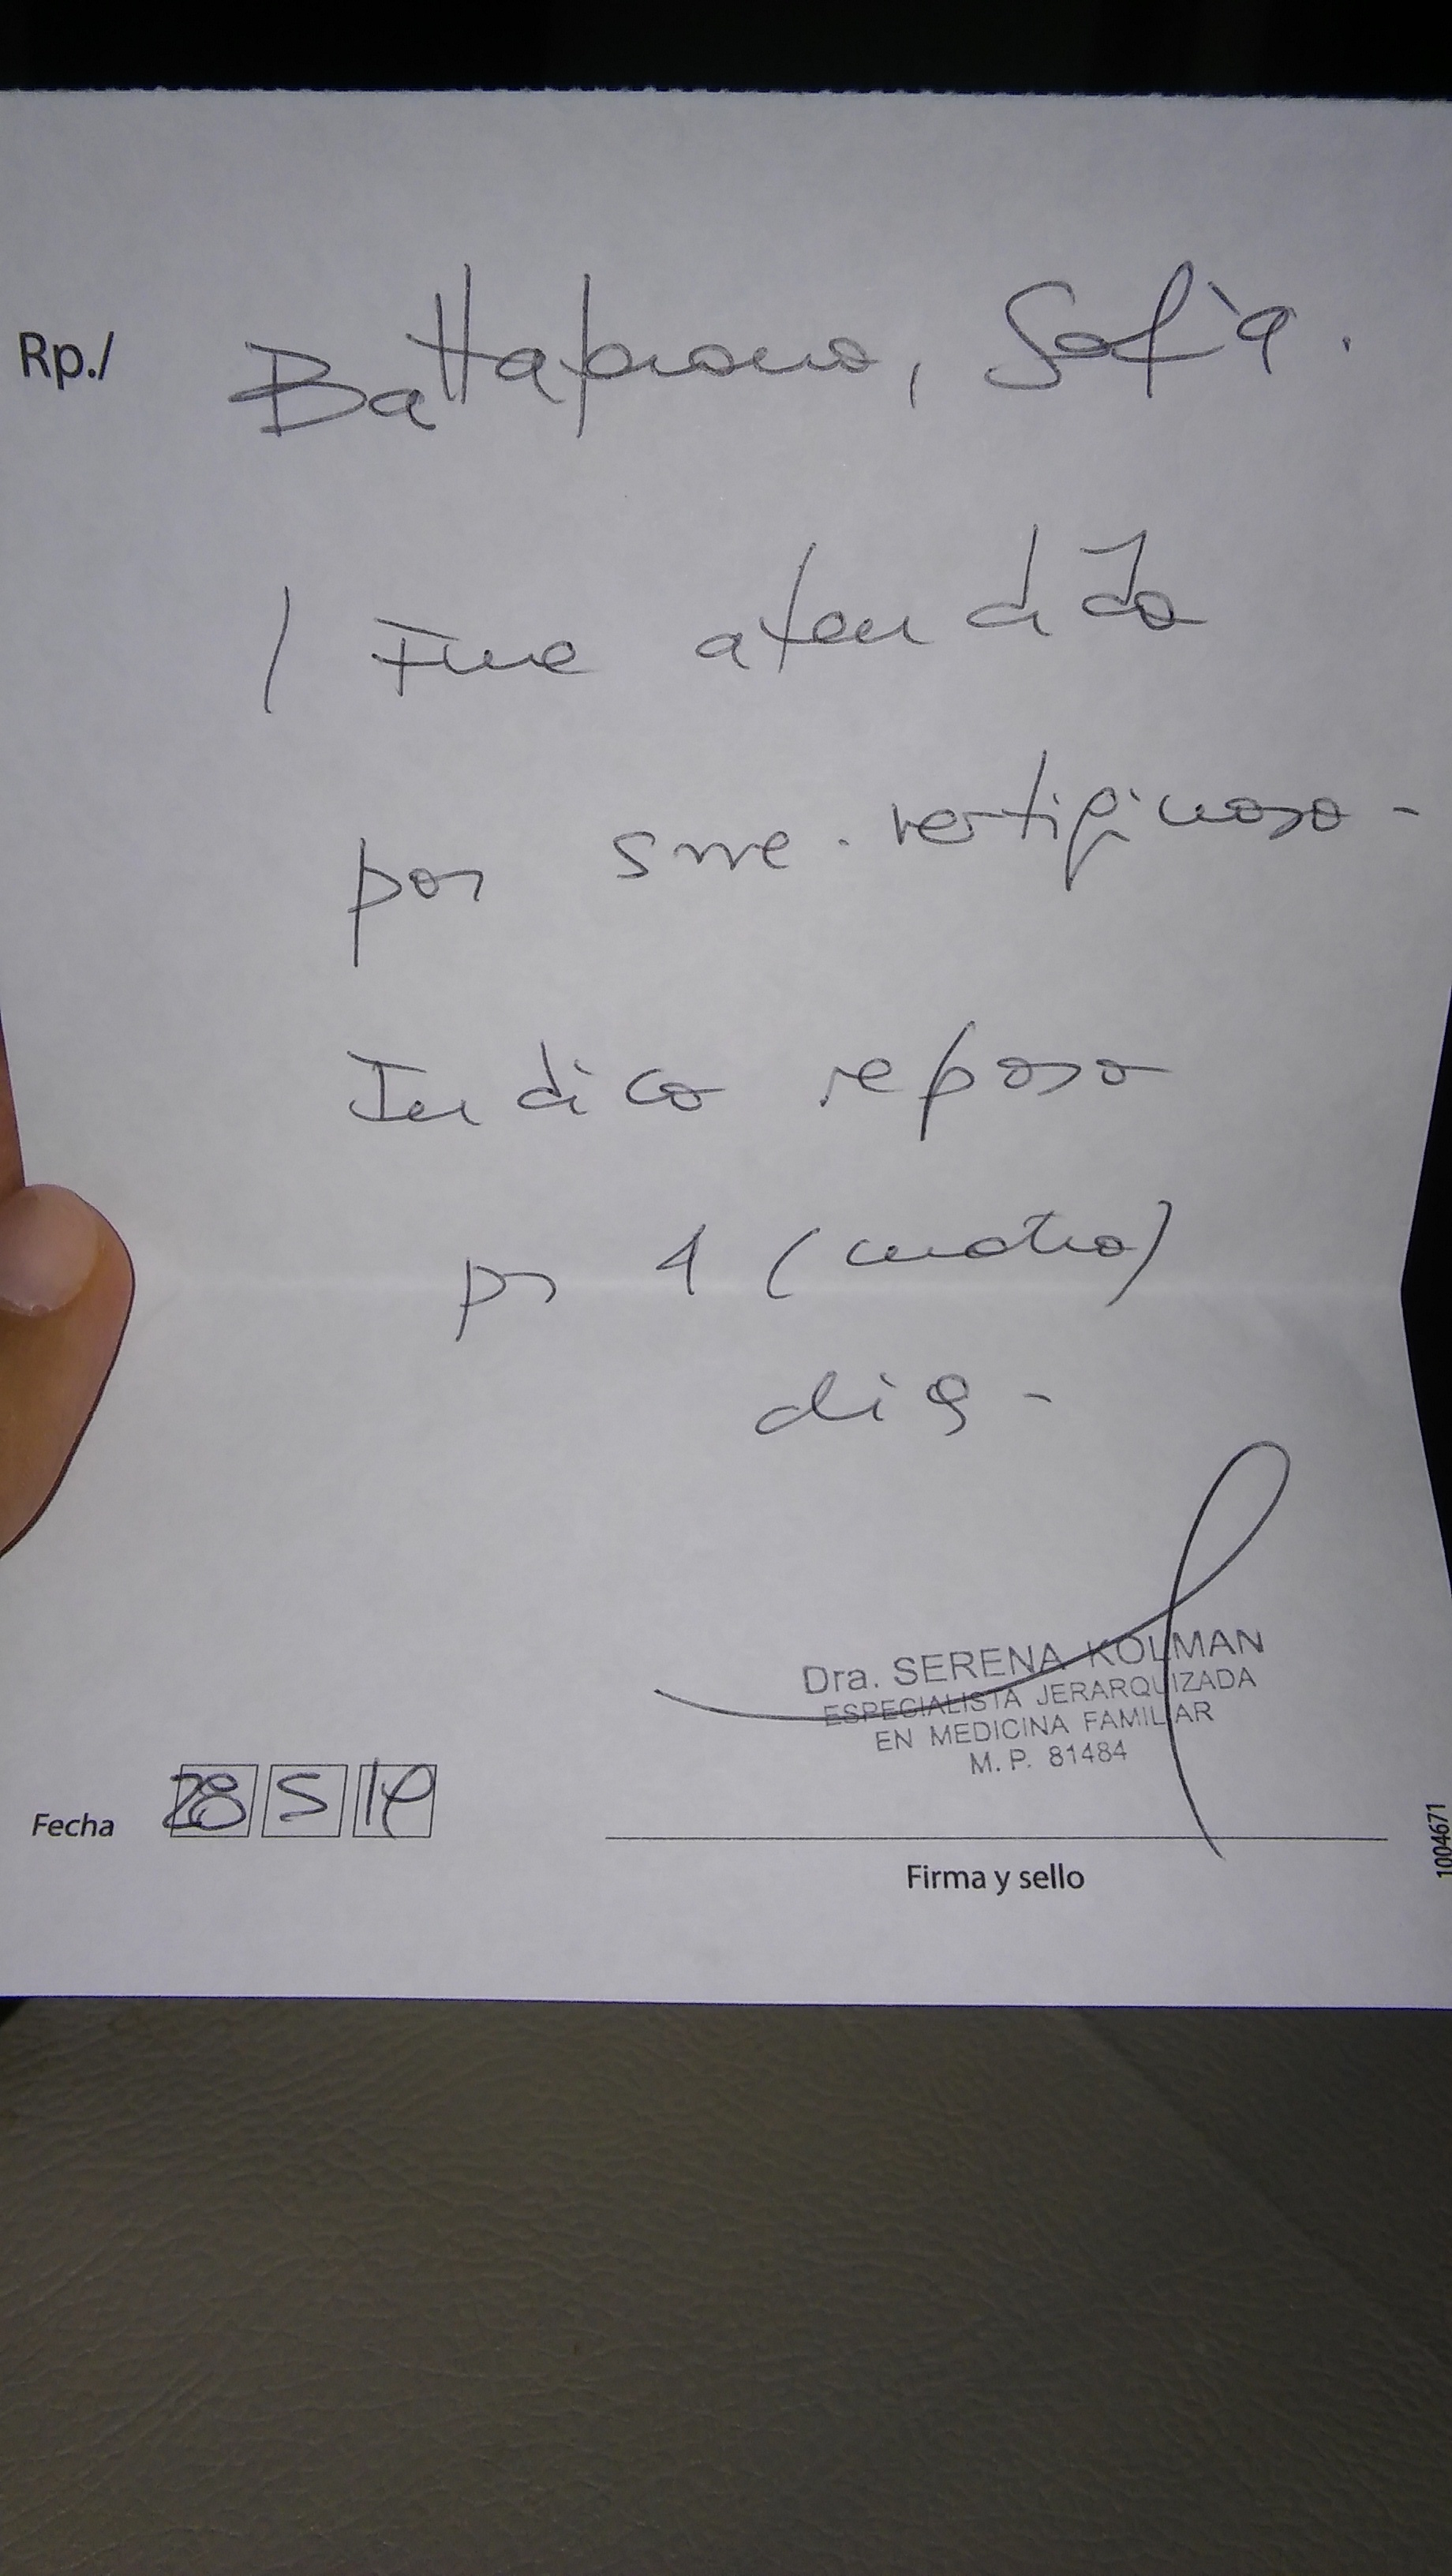 Rp./ Battaprano, Sofía.
/ Fue atendida
por sme. vertiginoso -
Indico reposo
por 4 (cuatro)
días -
Dra. SERENA KOLMAN
ESPECIALISTA JERARQUIZADA
EN MEDICINA FAMILIAR
M. P. 81484
Fecha 28 5 19
Firma y sello
1004671